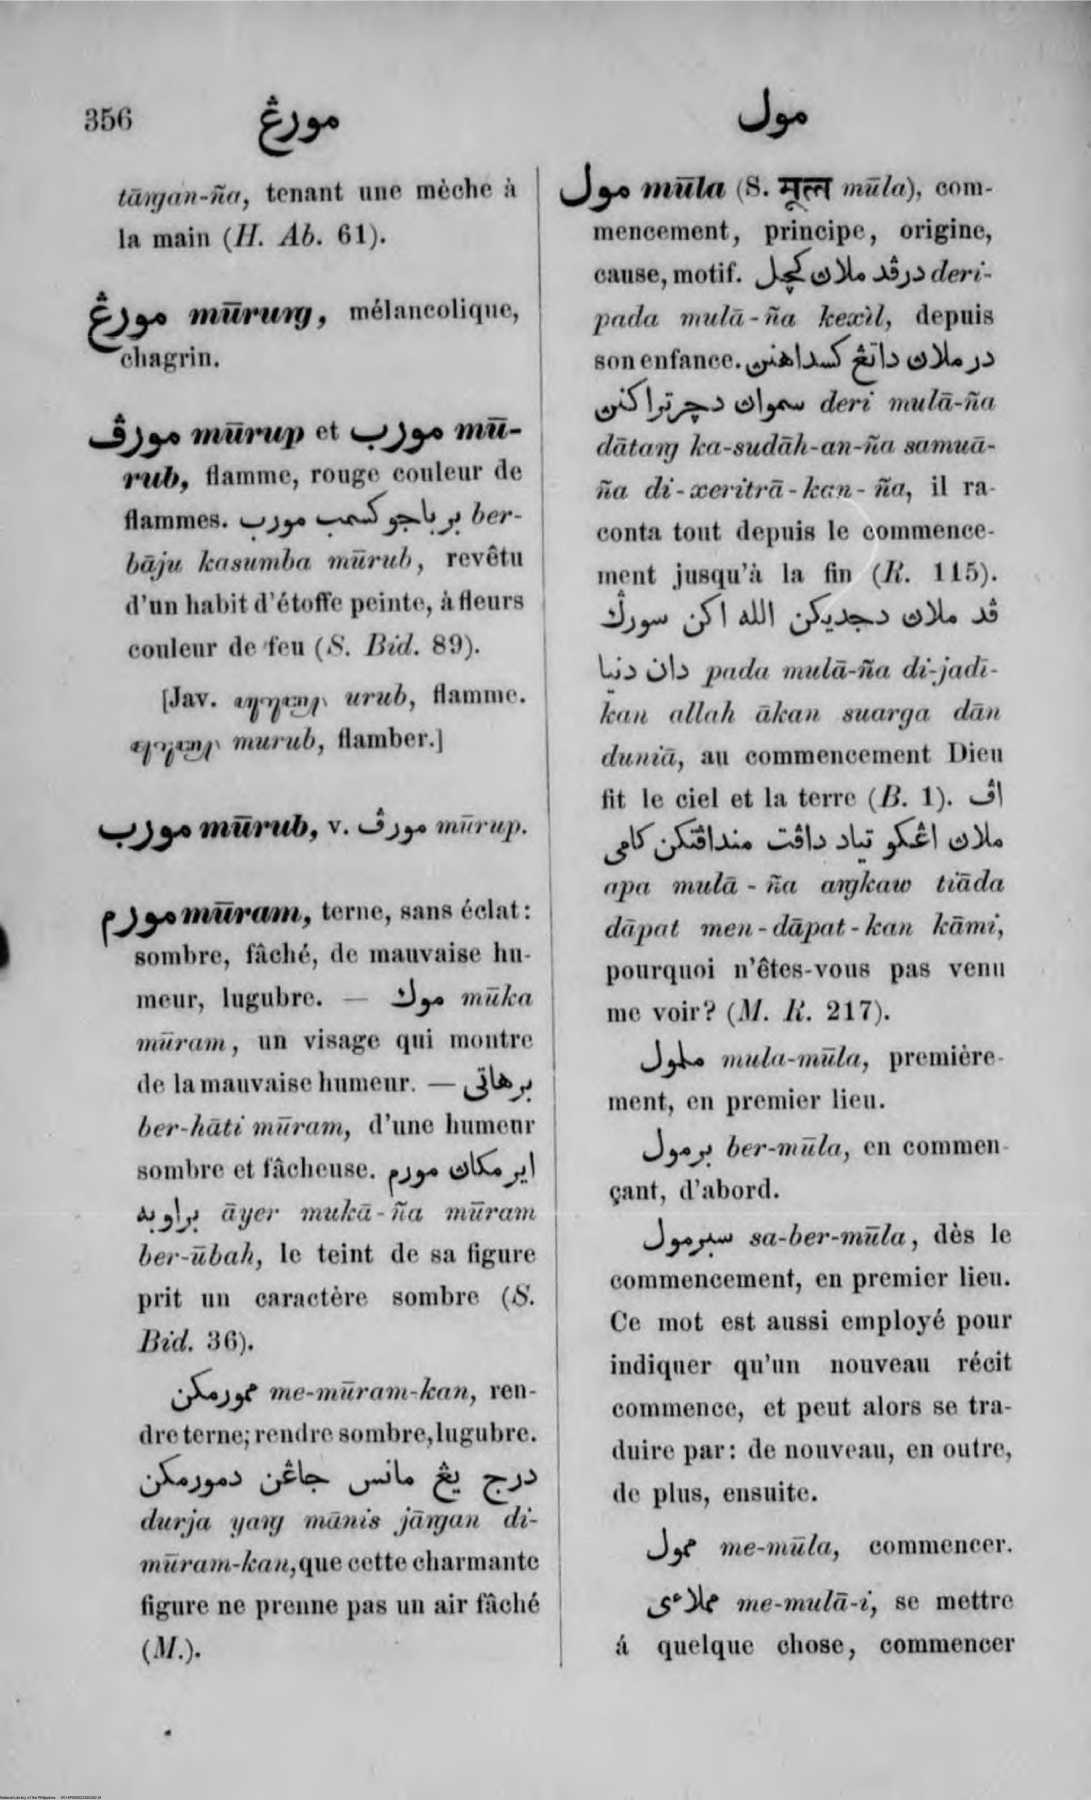 356
مورڠ
مول
tāngan-ña, tenant une mèche à
la main (H. Ab. 61).
مورڠ mūrung, mélancolique,
chagrin.
مورڤ mūrup et مورب mū-
rub, flamme, rouge couleur de
flammes. بر باجو کسمب مورب ber-
bāju kasumba mūrub, revêtu
d'un habit d'étoffe peinte, à fleurs
couleur de feu (S. Bid. 89).
[Jav. urub, flamme.
murub, flamber.]
مورب mūrub, v. مورڤ mūrup.
مورم mūram, terne, sans éclat:
sombre, fâché, de mauvaise hu-
meur, lugubre. — موك mūka
mūram, un visage qui montre
de la mauvaise humeur. — برهاتى
ber-hāti mūram, d'une humeur
sombre et fâcheuse. اير مكاڽ مورم
براوبه āyer mukā-ña mūram
ber-ūbah, le teint de sa figure
prit un caractère sombre (S.
Bid. 36).
ممورمكن me-mūram-kan, ren-
dre terne; rendre sombre, lugubre.
درج يڠ مانس جاڠن دمورمكن
durja yang mānis jāngan di-
mūram-kan, que cette charmante
figure ne prenne pas un air fâché
(M.).
مول mūla (S. मूल mūla), com-
mencement, principe, origine,
cause, motif. درڤد ملاڽ کچل deri-
pada mulā-ña kexìl, depuis
son enfance. در ملاڽ داتڠ کسداهنڽ
سمواڽ دچرتراکنڽ deri mulā-ña
dātang ka-sudāh-an-ña samuā-
ña di-xeritrā-kan-ña, il ra-
conta tout depuis le commence-
ment jusqu'à la fin (R. 115).
ڤد ملاڽ دجديكن الله اكن سورڬ
دان دنيا pada mulā-ña di-jadī-
kan allah ākan suarga dān
duniā, au commencement Dieu
fit le ciel et la terre (B. 1). اڤ
ملاڽ اڠكو تياد داڤت منداڤتكن كامى
apa mulā-ña angkaw tiāda
dāpat men-dāpat-kan kāmi,
pourquoi n'êtes-vous pas venu
me voir? (M. R. 217).
ملمول mula-mūla, première-
ment, en premier lieu.
برمول ber-mūla, en commen-
çant, d'abord.
سبرمول sa-ber-mūla, dès le
commencement, en premier lieu.
Ce mot est aussi employé pour
indiquer qu'un nouveau récit
commence, et peut alors se tra-
duire par: de nouveau, en outre,
de plus, ensuite.
ممول me-mūla, commencer.
مملاءى me-mulā-i, se mettre
á quelque chose, commencer